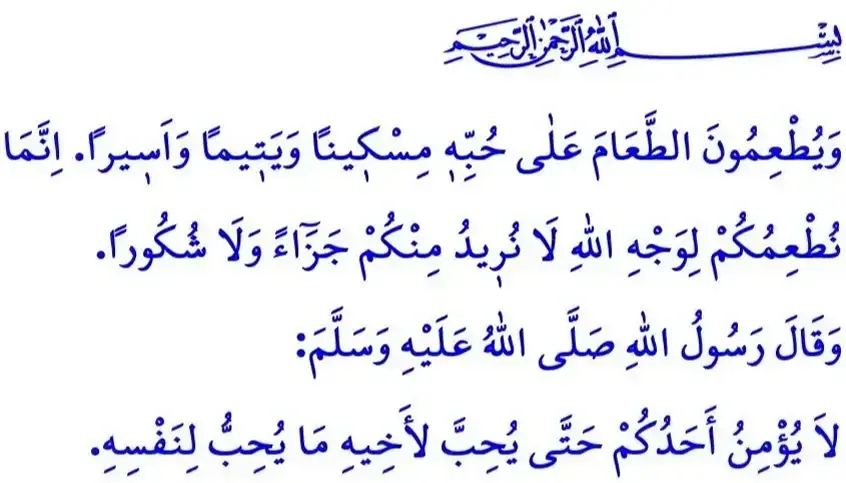 بِسْمِ اللهِ الرَّحْمٰنِ الرَّحِيمِ
وَيُطْعِمُونَ الطَّعَامَ عَلٰى حُبِّه۪ مِسْك۪ينًا وَيَت۪يمًا وَاَس۪يرًا. اِنَّمَا
نُطْعِمُكُمْ لِوَجْهِ اللهِ لَا نُر۪يدُ مِنْكُمْ جَزَٓاءً وَلَا شُكُورًا.
وَقَالَ رَسُولُ اللهِ صَلَّى اللهُ عَلَيْهِ وَسَلَّمَ:
لاَ يُؤْمِنُ أَحَدُكُمْ حَتَّى يُحِبَّ لأَخِيهِ مَا يُحِبُّ لِنَفْسِهِ.